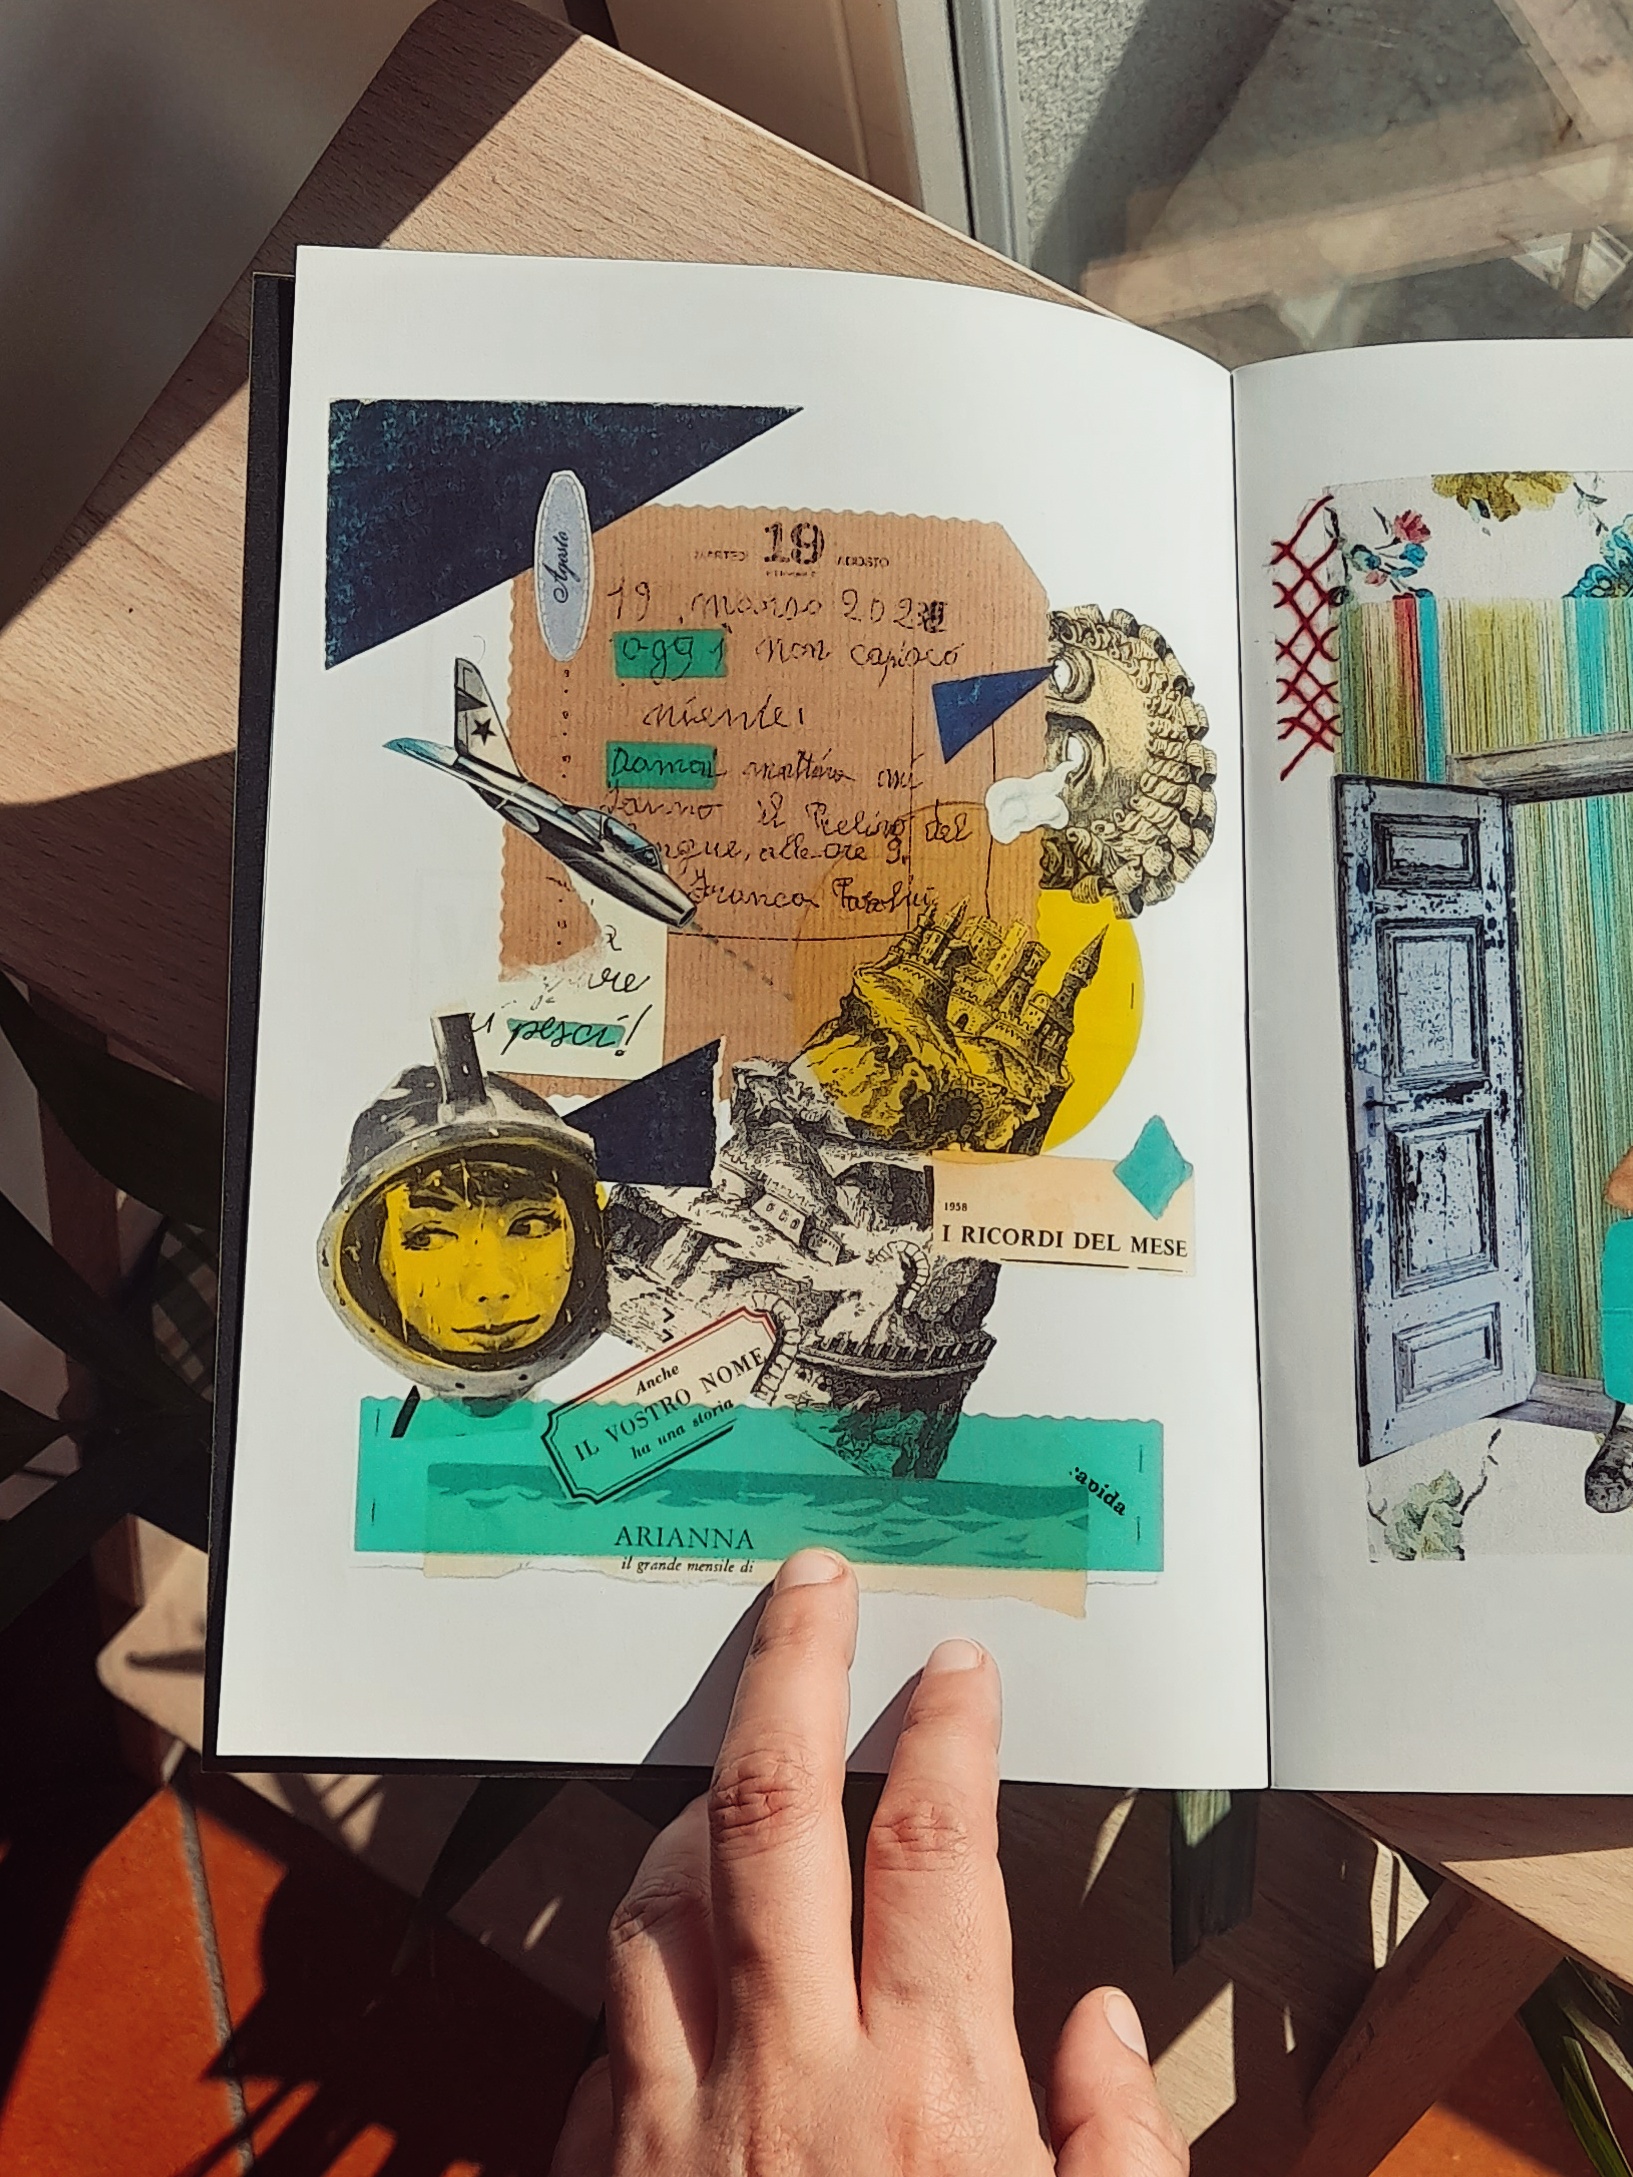 Agosto
19
AGOSTO
19 marzo 202
oggi non capisco
niente!
Domani mattina mi
fanno il Prelievo del
ngue, alle ore 9.
Franca
a
ure
i pesci!
1958
I RICORDI DEL MESE
Anche
IL VOSTRO NOME
ha una storia
rapida
ARIANNA
il grande mensile di